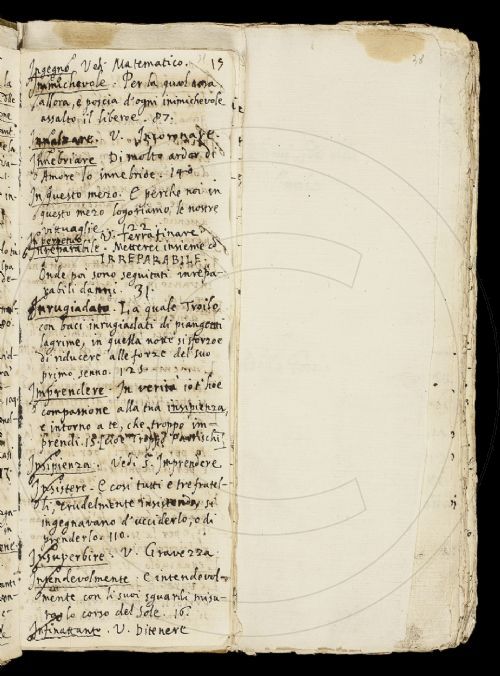 Ingegno. Vedi Matematico. 15
38
Inimichevole. Per la qual cosa
allora, e poscia d'ogni inimichevole
assalto il liberò. 87.
Innalzare. V. Incoronare
Innebriare. Di molto ardor di
Amore lo innebride. 140
In questo mezo. E perche noi in
questo mezo logoriamo le nostre
vittuaglie. 22
In perpetuo. V.
Inreparabile. Mettere insieme co
IRREPARABILE.
Onde poi sono seguitati inrepa-
rabili danni. 31.
Inrugiadato. La quale Troilo
con baci inrugiadati di piangenti
lagrime, in quella notte si sforzoe
di riducere alle forze del suo
primo senno. 125
Imprendere. In verità io t'hoe
compassione alla tua insipienza,
e intorno a te, che troppo im-
prendi. 15
Insipienza. Vedi S. Imprendere
Insistere. E così tutti e tre fratel-
li, crudelmente insistendo, si
ingegnavano d'ucciderlo, o di
prenderlo. 110.
Insuperbire. V. Gravezza
Intendevolmente. E intendevol-
mente con li suoi sguardi misu-
rò lo corso del Sole. 16
Infinattanto. V. Ditenere